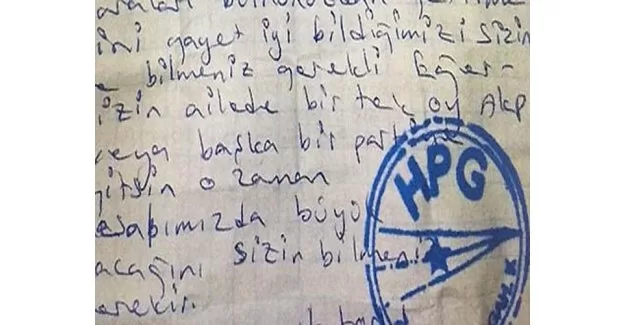 ini gayet iyi bildiğimizi sizin
bilmeniz gerekli Eğer-
izin ailede bir tek oy Akp
veya başka bir partiye
gitsin o zaman
esabımızda büyük
acağını sizin bilmeni
erekir.
HPG